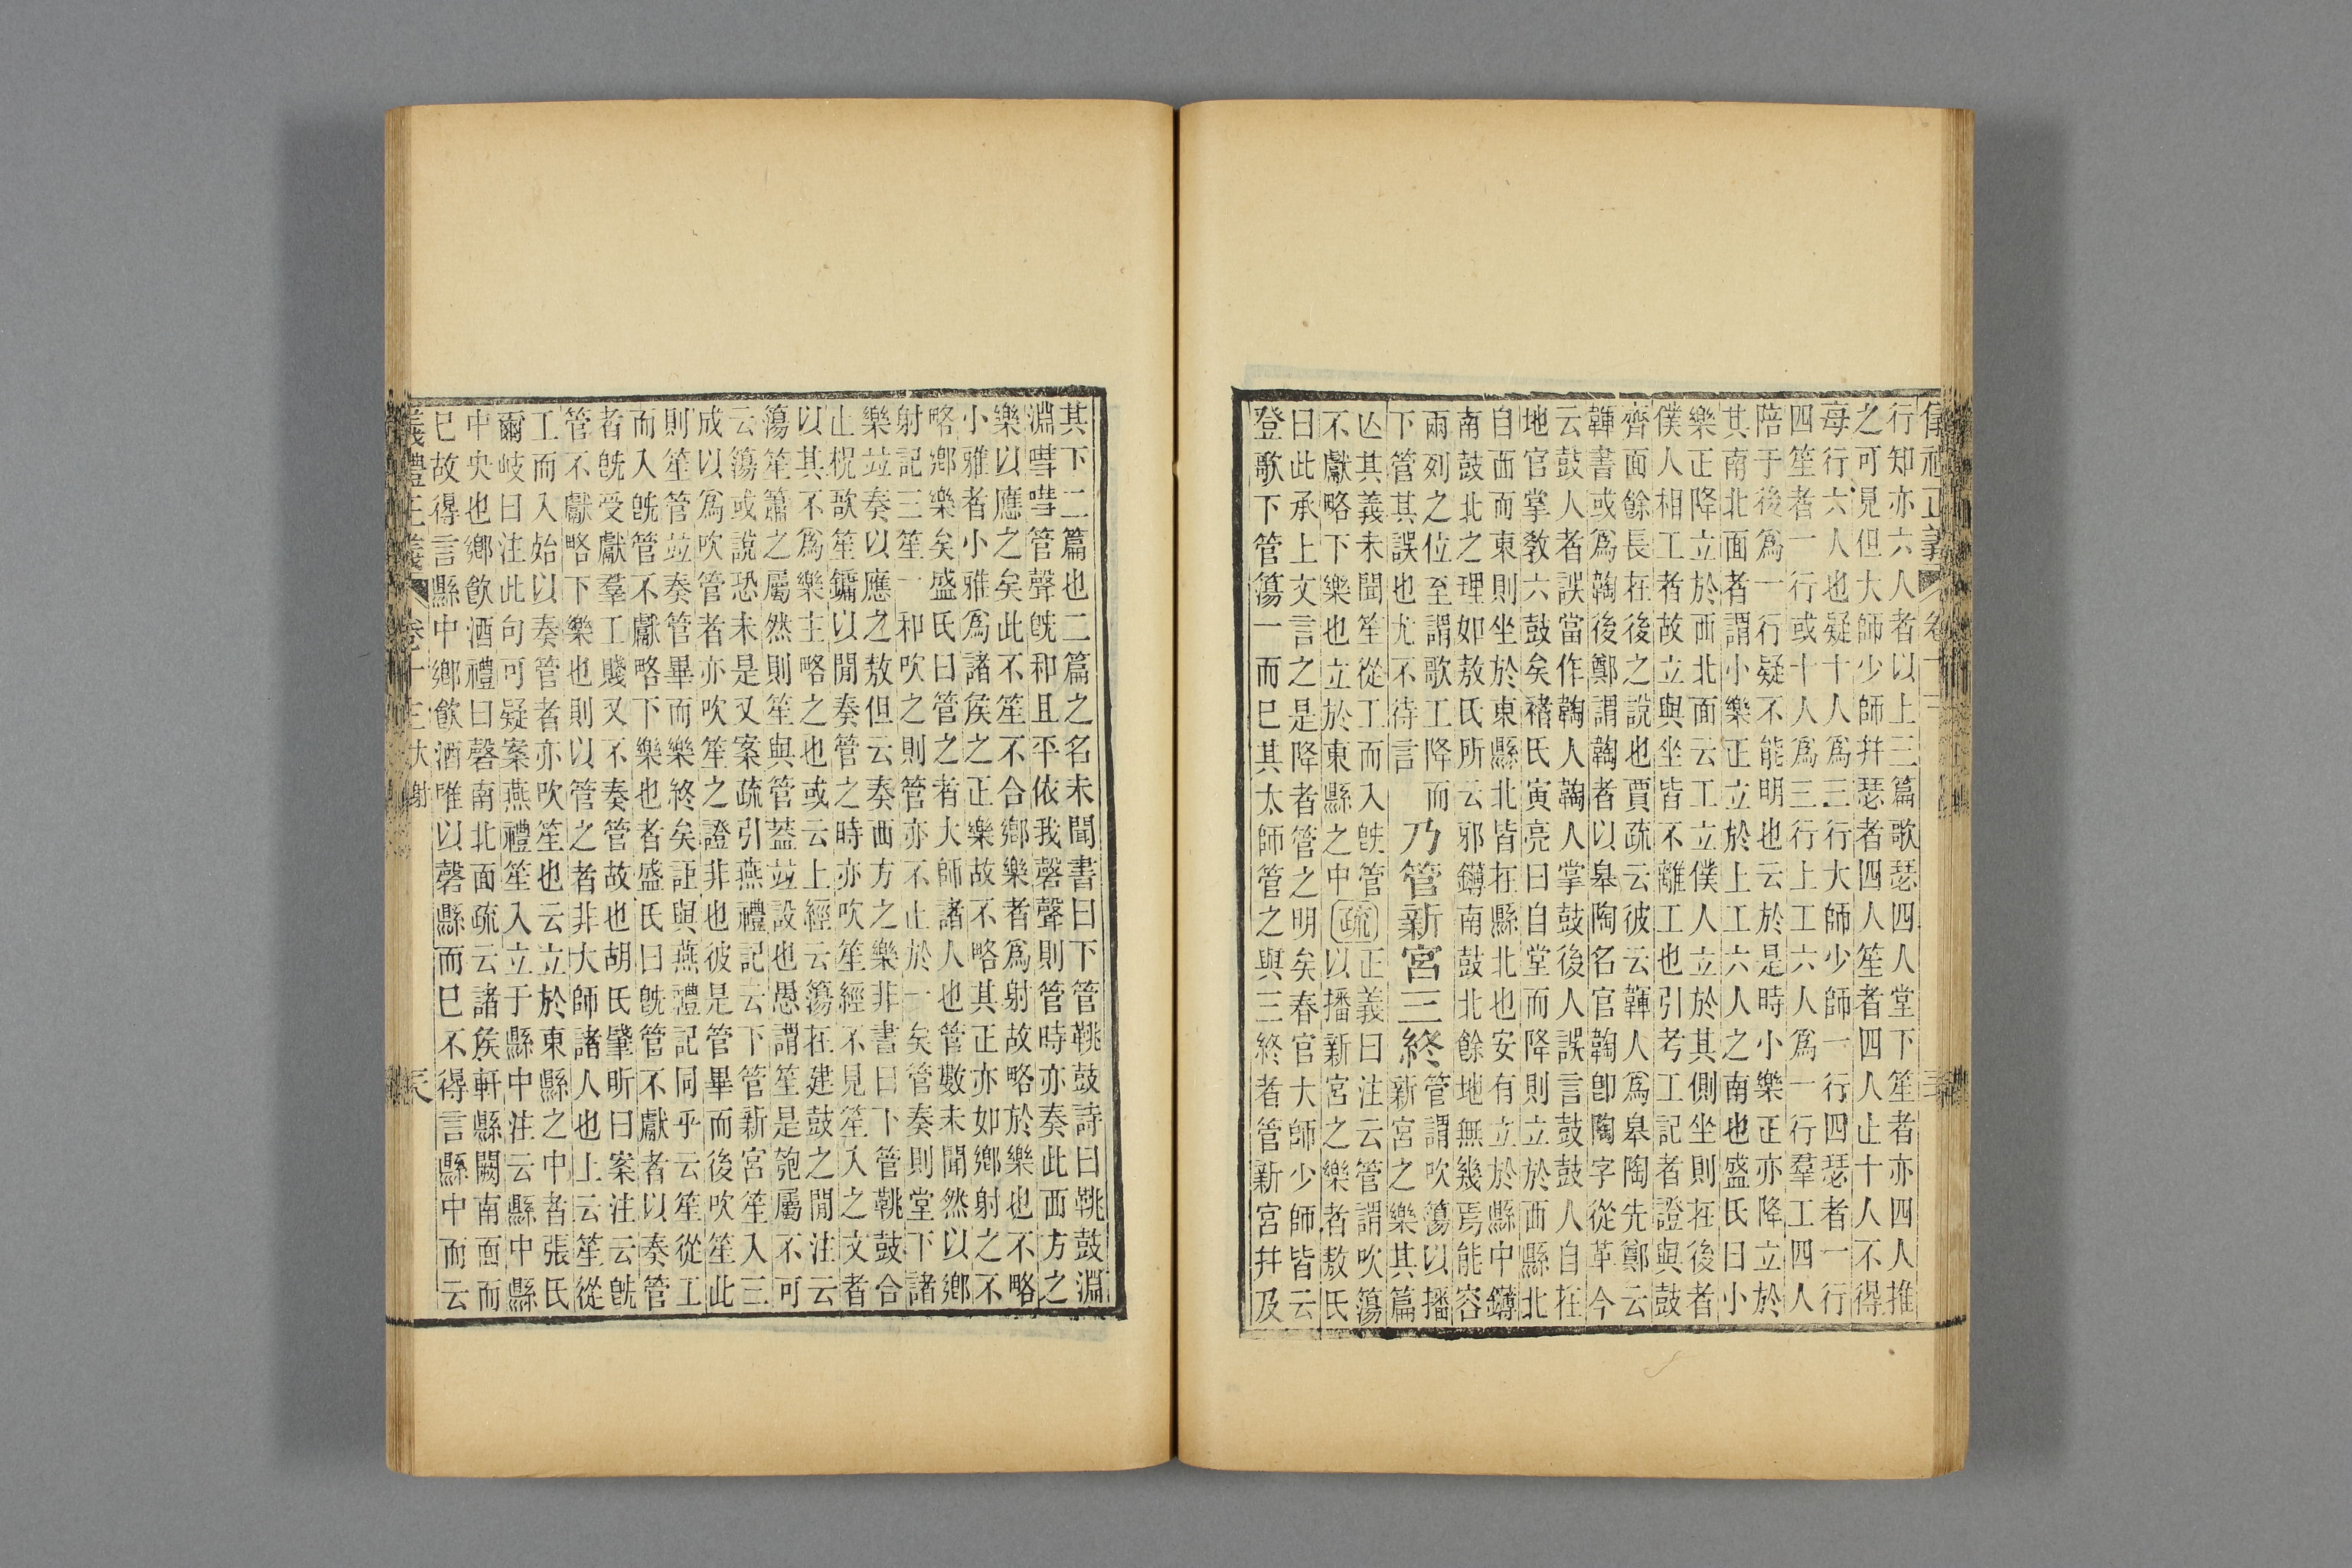 行知亦六人者以上三篇歌瑟四人堂下笙者亦四人推
之可見但大師少師并瑟者四人笙者四人止十人不得
每行六人也疑十人爲三行大師少師一行四瑟者一行
四笙者一行或十人爲三行上工六人爲一行羣工四人
陪于後爲一行疑不能明也云於是時小樂正亦降立於
其南北面者謂小樂正立於上工六人之南也盛氏曰小
樂正降立於西北面云工立僕人立於其側坐則在後者
僕人相工者故立與坐皆不離工也引考工記者證與鼓
齊面餘長在後之說也賈疏云彼云鞸人爲皋陶先鄭云
鞸書或爲鞠後鄭謂鞠者以皋陶名官鞠卽陶字從革今
云鼓人者誤當作鞠人鞠人掌鼓後人誤言鼓鼓人自在
地官掌敎六鼓矣褚氏寅亮曰自堂而降則立於西縣北
自西而東則坐於東縣北皆在縣北也安有立於縣中鑮
南鼓北之理如敖氏所云邪鑮南鼓北餘地無幾焉能容
兩列之位至謂歌工降而
下管其誤也尤不待言
乃管新宮三終
管謂吹簜以播
新宮之樂其篇
亾其義未聞笙從工而入旣管
不獻略下樂也立於東縣之中
疏
正義曰注云管謂吹簜
以播新宮之樂者敖氏
曰此承上文言之是降者管之明矣春官大師少師皆云
登歌下管簜一而已其太師管之與三終者管新宮并及
其下二篇也二篇之名未聞書曰下管鞉鼓詩曰鞉鼓淵
淵嘒嘒管聲旣和且平依我磬聲則管時亦奏此西方之
樂以應之矣此不笙不合鄉樂者爲射故略於樂也不略
小雅者小雅爲諸侯之正樂故不略其正亦如鄉射之不
略鄉樂矣盛氏曰管之者大師諸人也管數未聞然以鄉
射記三笙一和吹之則管亦不止於一矣管奏則堂下諸
樂竝奏以應之敖但云奏西方之樂非書曰下管鞉鼓合
止柷歌笙鏞以閒奏管之時亦吹笙經不見笙入之文者
以其不爲樂主略之也或云上經云簜在建鼓之閒注云
簜笙簫之屬然則笙與管葢竝設也愚謂笙是匏屬不可
云簜或說恐未是又案疏引燕禮記云下管新宮笙入三
成以爲吹管者亦吹笙之證非也彼是管畢而後吹笙此
則笙管竝奏管畢而樂終矣詎與燕禮記同乎云笙從工
而入旣管不獻略下樂也者盛氏曰旣管不獻者以奏管
者旣受獻羣工賤又不奏管故也胡氏肇昕曰案注云旣
管不獻略下樂也則以管之者非大師諸人也上云笙從
工而入始以奏管者亦吹笙也云立於東縣之中者張氏
爾岐曰注此句可疑案燕禮笙入立于縣中注云縣中縣
中央也鄉飮酒禮曰磬南北面疏云諸侯軒縣闕南面而
已故得言縣中鄉飮酒唯以磬縣而已不得言縣中而云